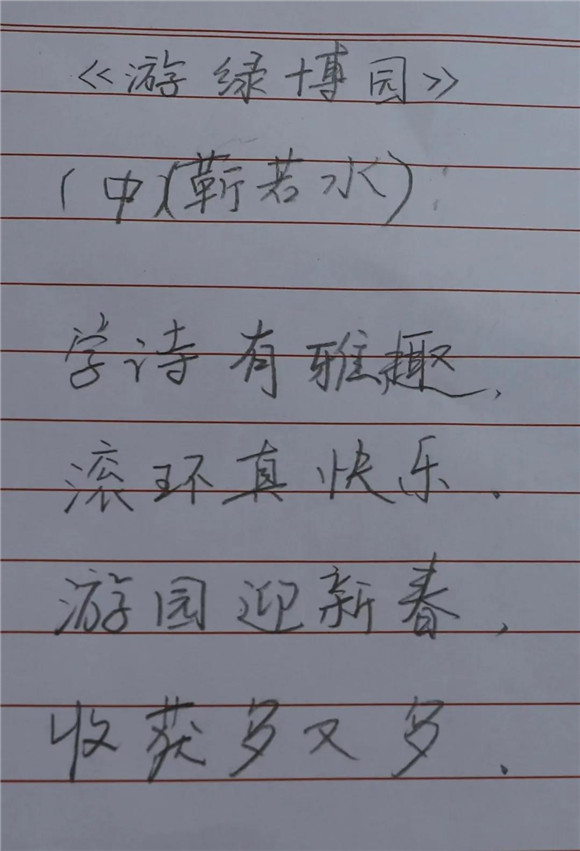 《游绿博园》
(中)(蕲若水)
学诗有雅趣,
滚环真快乐.
游园迎新春,
收获多又多.